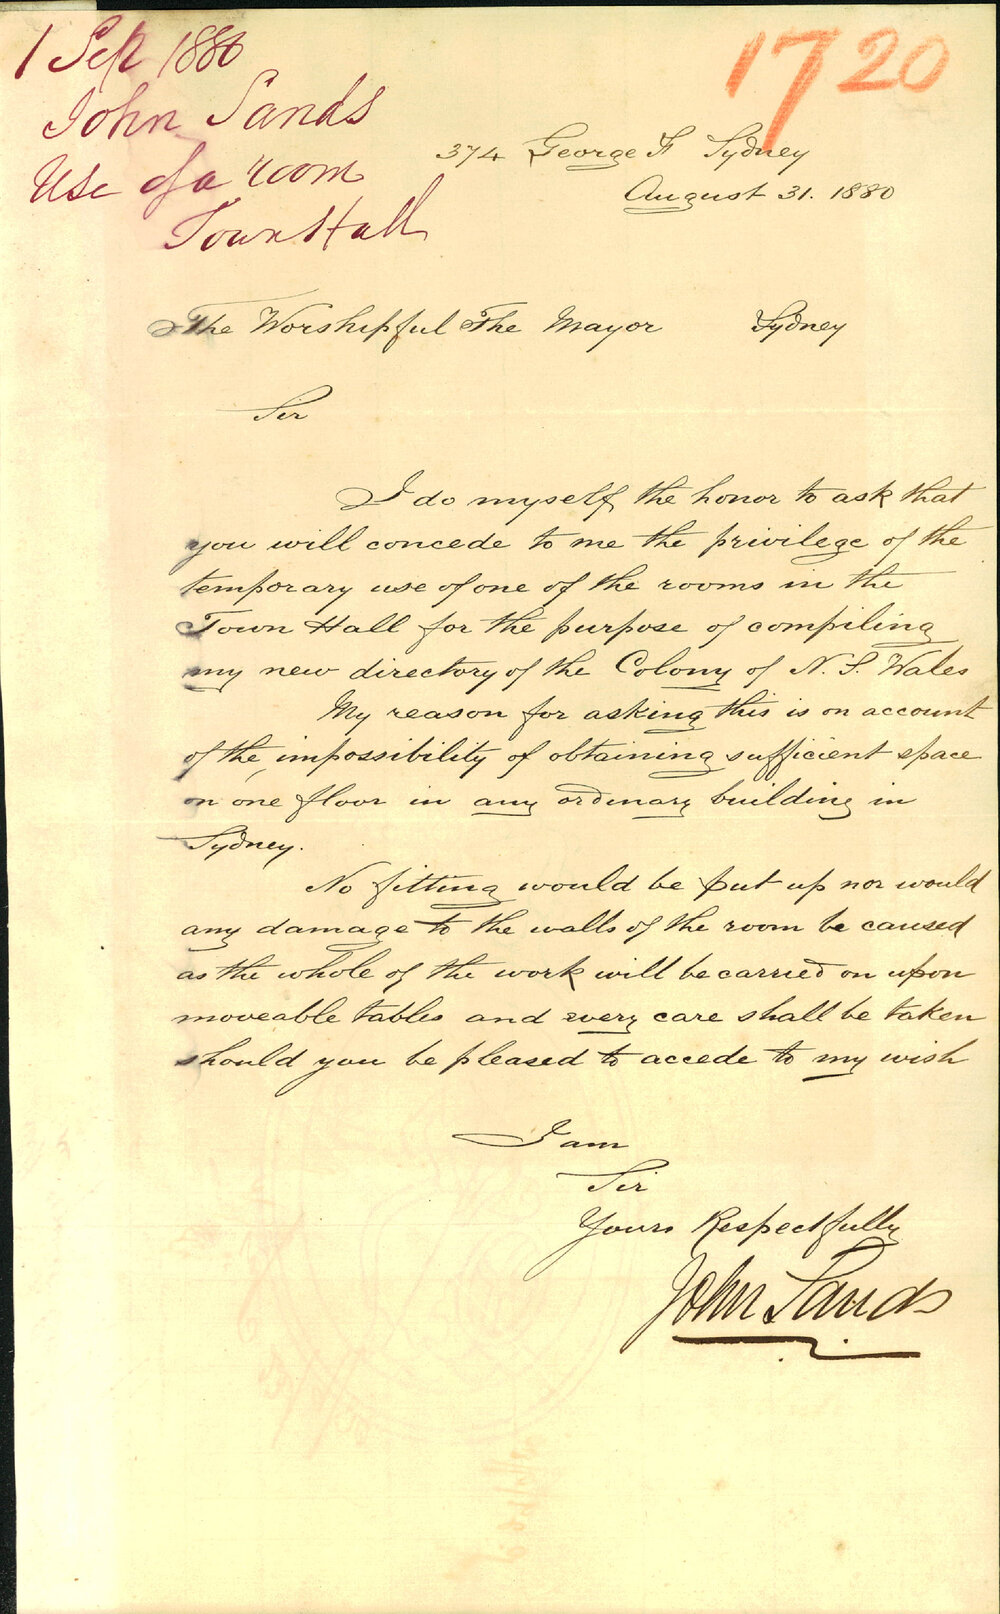 1 Sep 1880
John Sands
Use of a room
Town Hall
1720
374 George St Sydney
August 31. 1880
The Worshipful The Mayor Sydney
Sir
I do myself the honor to ask that
you will concede to me the privilege of the
temporary use of one of the rooms in the
Town Hall for the purpose of compiling
my new directory of the Colony of N. S. Wales
My reason for asking this is on account
of the impossibility of obtaining sufficient space
on one floor in any ordinary building in
Sydney.
No fitting would be put up nor would
any damage to the walls of the room be caused
as the whole of the work will be carried on upon
moveable tables and every care shall be taken
should you be pleased to accede to my wish
I am
Sir
Yours Respectfully
John Sands